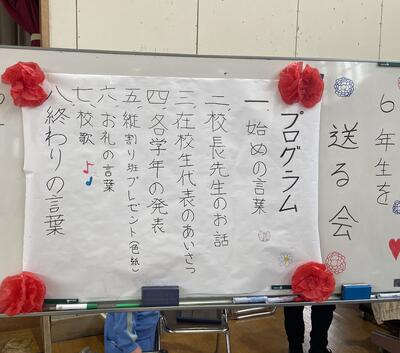 6年生を
送る会
プログラム
一 始めの言葉
二、校長先生のお話
三、在校生代表のあいさつ
四、各学年の発表
五、縦割り班プレゼント(色紙)
六、お礼の言葉
七、校歌
八、終わりの言葉